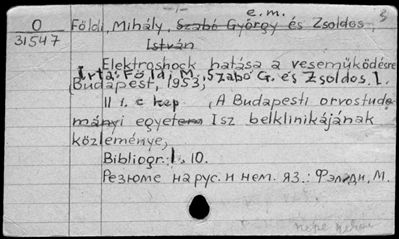 e.m.
O
31547
Földi, Mihály, Szabó György és Zsoldos,
István
Elektroshock hatása a veseműködésre
Írta: Földi, M., Szabó G. és Zsoldos, I.
Budapest, 1953,
11 l. c kep , A Budapesti orvostudo
mányi egyetem Isz belklinikájának
közleménye,
Bibliogr: l, 10.
Резюме на рус. и нем. яз.: Фэлди, М.